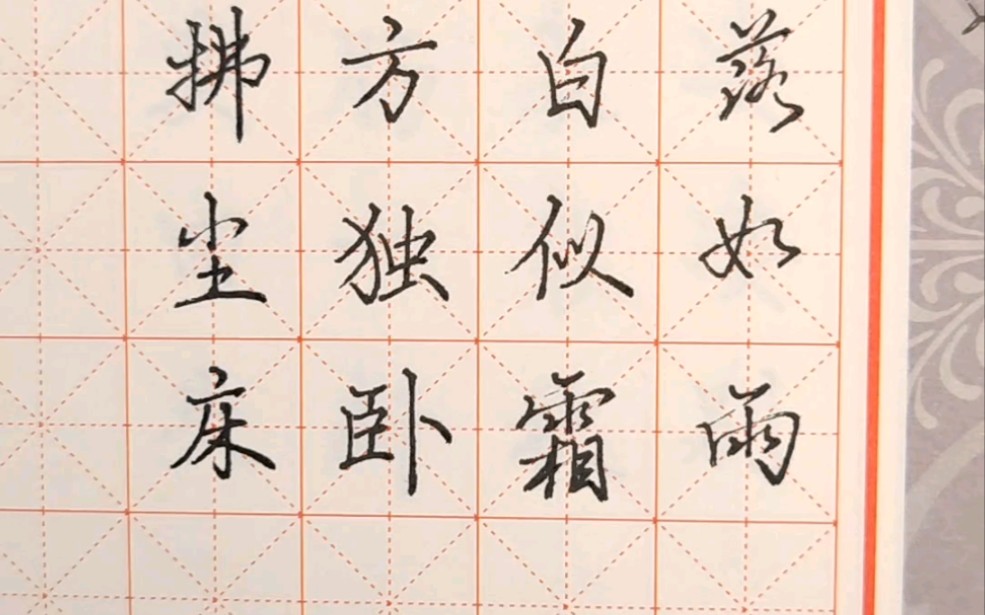 落如雨
白似霜
方独卧
拂尘床